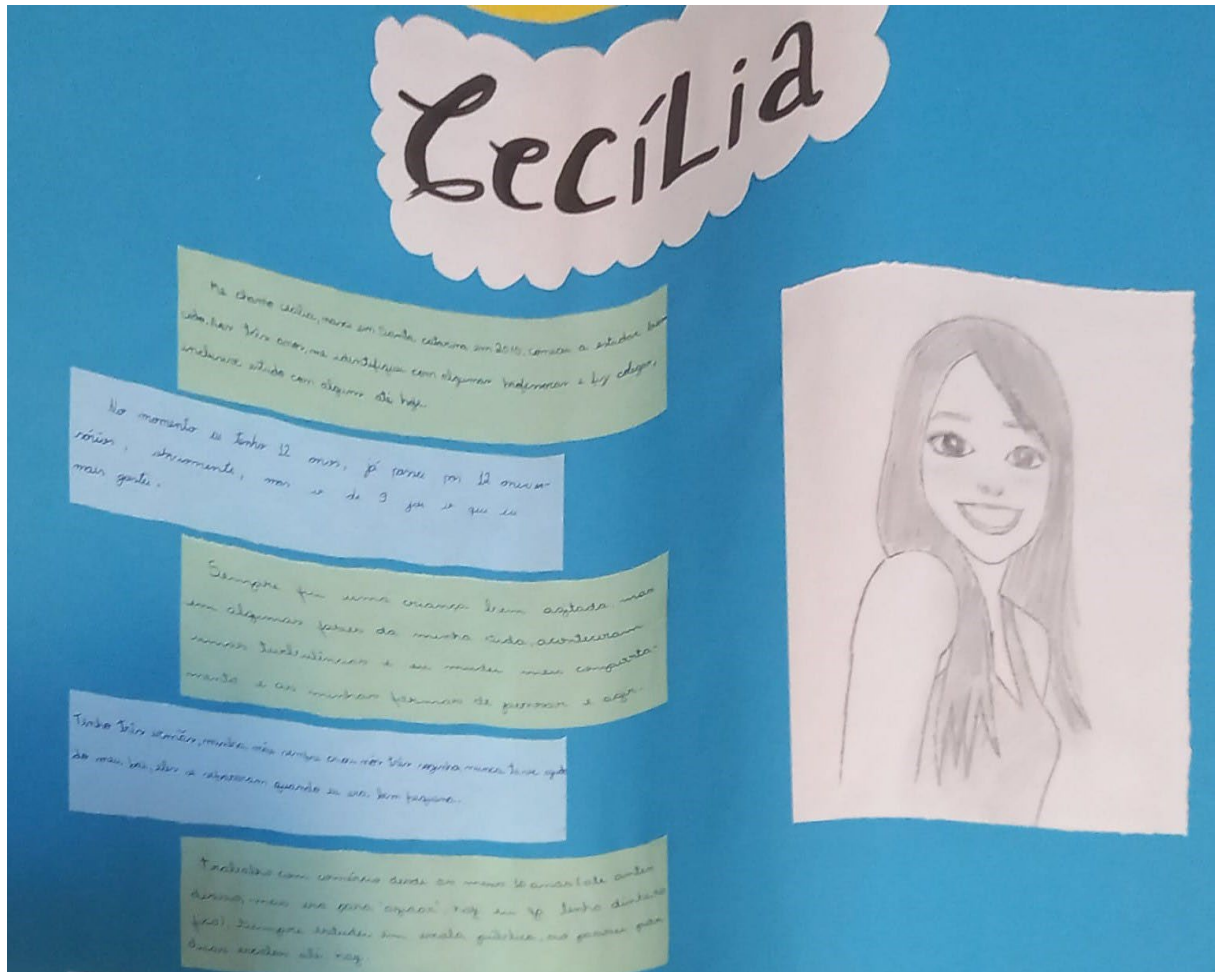 Cecília
Me chamo cecília, nasci em Santa catarina em 2010, comecei a estudar bem
cedo, aos três anos, me identifiquei com algumas professoras e fiz colegas,
inclusive estudo com alguns até hoje.
No momento eu tenho 12 anos, já passei por 12 aniver-
sários, obviamente, mas o de 9 foi o que eu
mais gostei.
Sempre fui uma criança bem agitada, mas
em algumas fases da minha vida, aconteceram
umas turbulências e eu mudei meu comporta-
mento e as minhas formas de pensar e agir.
Tenho três irmãos, minha mãe sempre criou nós três sozinha, nunca teve ajuda
do meu pai, eles se separaram quando eu era bem pequena.
Trabalho com comércio desde os meus 10 anos (até antes
disso, mas era para
tenho dinheiro
fixo). Sempre estudei em escola pública, só passei por
duas escolas até